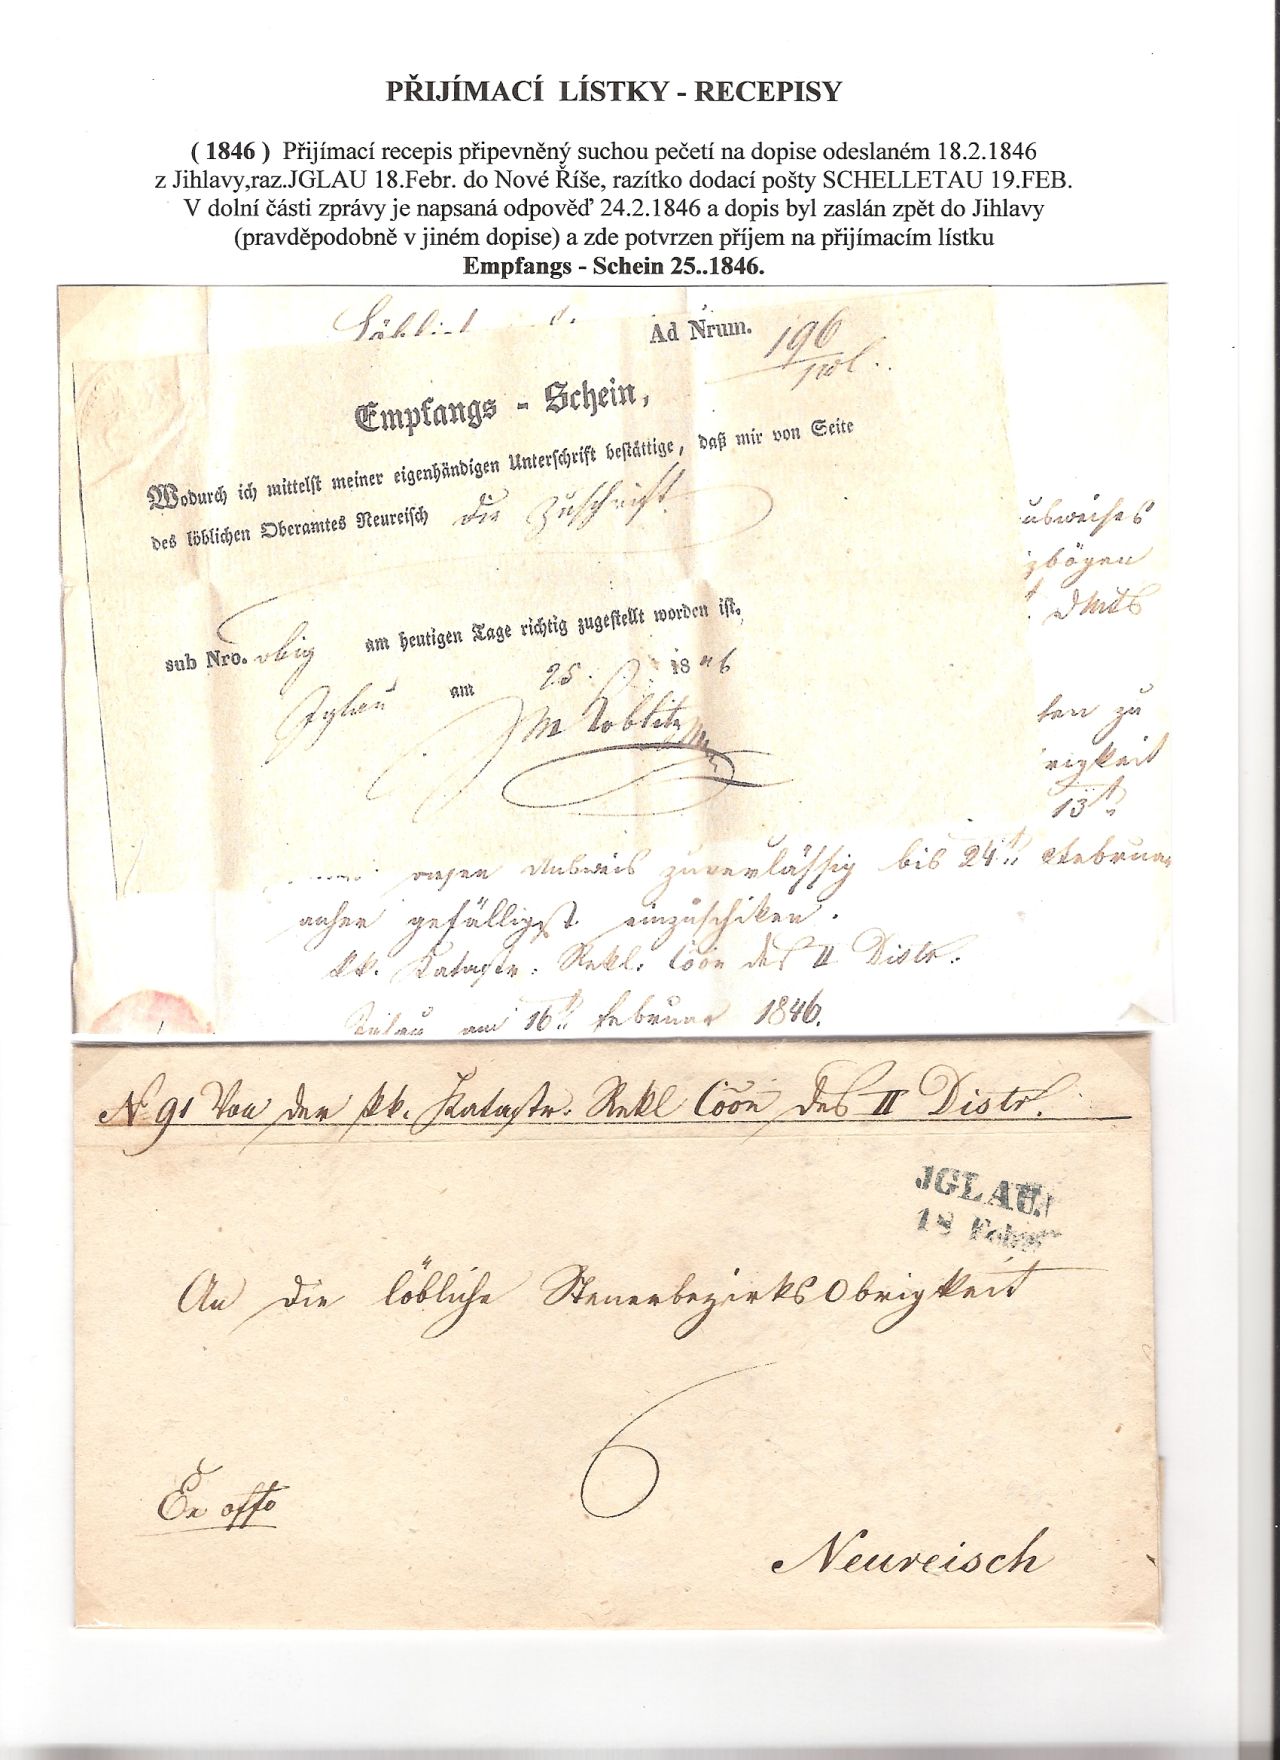 PŘIJÍMACÍ LÍSTKY - RECEPISY
( 1846 ) Přijímací recepis připevněný suchou pečetí na dopise odeslaném 18.2.1846
z Jihlavy,raz.JGLAU 18.Febr. do Nové Říše, razítko dodací pošty SCHELLETAU 19.FEB.
V dolní části zprávy je napsaná odpověď 24.2.1846 a dopis byl zaslán zpět do Jihlavy
(pravděpodobně v jiném dopise) a zde potvrzen příjem na přijímacím lístku
Empfangs - Schein 25..1846.
Ad Nrum. 196
Empfangs - Schein,
Wodurch ich mittelst meiner eigenhändigen Unterschrift bestättige, daß mir von Seite
des löblichen Oberamtes Neureisch die Zuschrift
sub Nro. obig am heutigen Tage richtig zugestellt worden ist.
Iglau am 25. 1846
ausweises
bögen
ten zu
rigkeit
13t
Ausweis zuverlässig bis 24t Februar
anher gefälligst einzuschiken.
kk. Katastr. Rekl. Coon des II Distr.
Iglau am 16t Februar 1846.
No 91 Von der kk. Katastr. Rekl Coon des II Distr.
JGLAU.
18 Febr
An die löbliche Steuerbezirks Obrigkeit
6
Ex offo
Neureisch